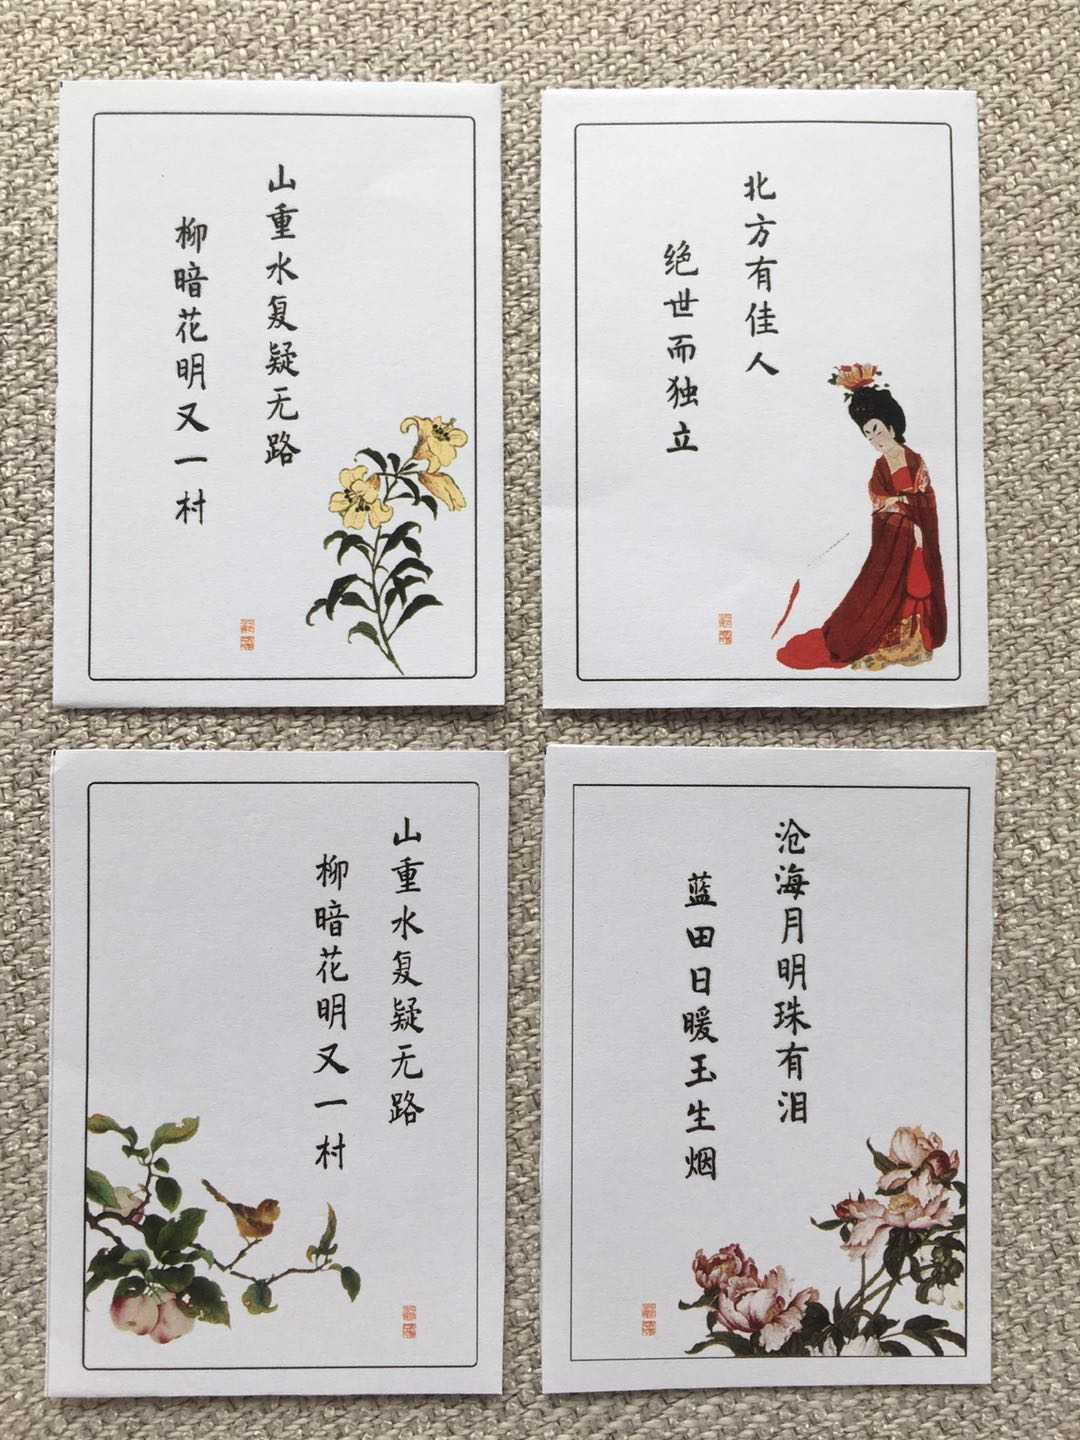 山重水复疑无路
柳暗花明又一村
北方有佳人
绝世而独立
山重水复疑无路
柳暗花明又一村
沧海月明珠有泪
蓝田日暖玉生烟